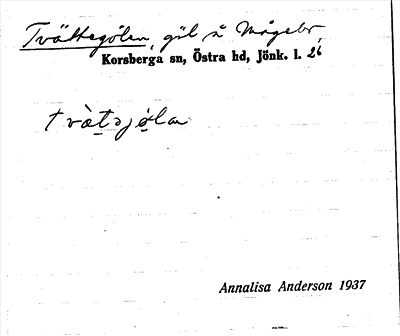 Tvättegölen, göl å Mågebo,
Korsberga sn, Östra hd, Jönk. l. 26
tvàt̠əjö̠lan
Annalisa Anderson 1937